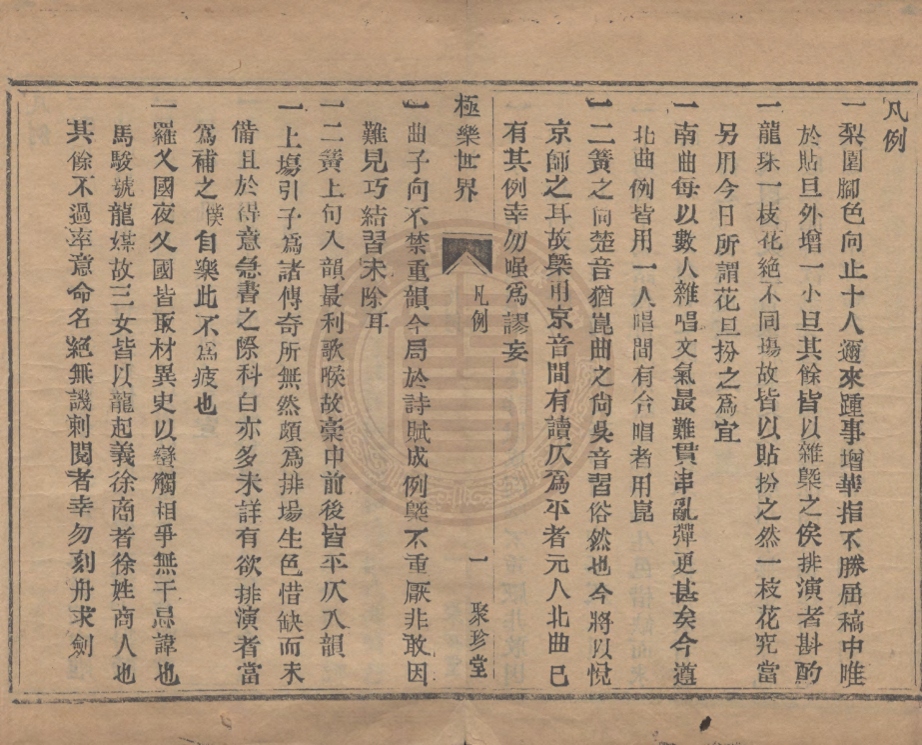 凡例
一梨園腳色向止十人邇來踵事增華指不勝屈稿中唯
於貼旦外增一小旦其餘皆以雜槩之俟排演者斟酌
一龍珠一枝花絕不同塲故皆以貼扮之然一枝花究當
另用今日所謂花旦扮之爲宜
一南曲每以數人雜唱文氣最難貫串亂彈更甚矣今遵
北曲例皆用一人唱間有合唱者用崑
一二簧之尙楚音猶崑曲之尙吳音習俗然也今將以悅
京師之耳故槩用京音間有讀仄爲平者元人北曲已
有其例幸勿嗤爲謬妄
極樂世界
凡例
一
聚珍堂
一曲子向不禁重韻今局於詩賦成例槩不重厭非敢因
難見巧結習未除耳
一二簧上句入韻最利歌喉故稾中前後皆平仄入韻
一上塲引子爲諸傳奇所無然頗爲排塲生色惜缺而未
備且於得意急書之際科白亦多未詳有欲排演者當
爲補之僕自樂此不爲疲也
一羅父國夜父國皆取材異史以蠻觸相爭無干忌諱也
馬駿號龍媒故三女皆以龍起義徐商者徐姓商人也
其餘不過率意命名絕無譏刺閱者幸勿刻舟求劍